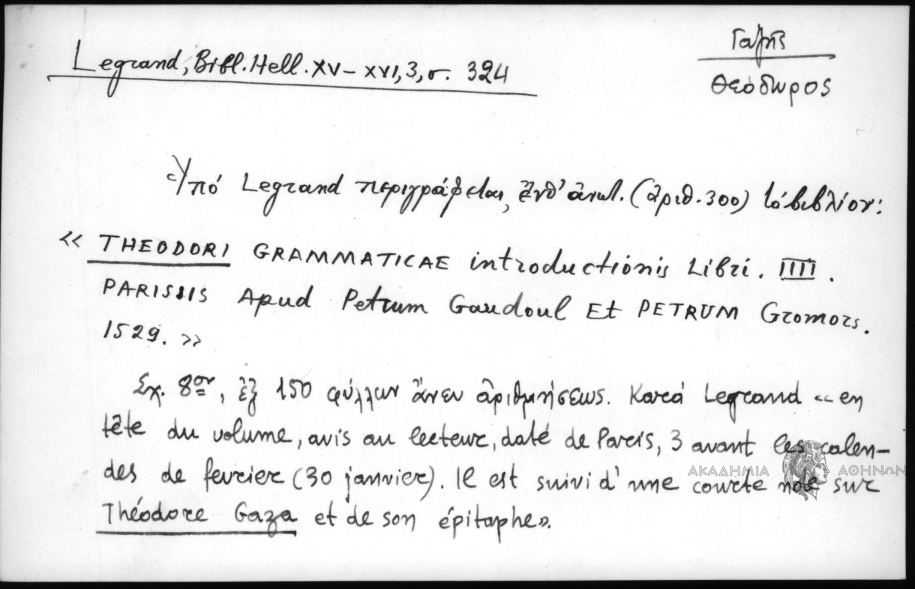 Legrand, Bibl. Hell. XV–XVI, 3, σ. 324
Γαζῆς
Θεόδωρος
Ὑπό Legrand περιγράφεται, ἐνθ' ἀνωτ. (ἀριθ. 300) τό βιβλίον:
« THEODORI GRAMMATICAE introductionis Libri. IIII.
PARISIIS Apud Petrum Gaudoul Et PETRUM Gromors.
1529. »
Σχ. 8ον, ἐξ 150 φύλλων ἄνευ ἀριθμήσεως. Κατά Legrand « en
tête du volume, avis au lecteur, daté de Paris, 3 avant les calen-
des de fevrier (30 janvier). Il est suivi d'une courte note sur
Théodore Gaza et de son épitaphe».
ΑΚΑΔΗΜΙΑ ΑΘΗΝΩΝ